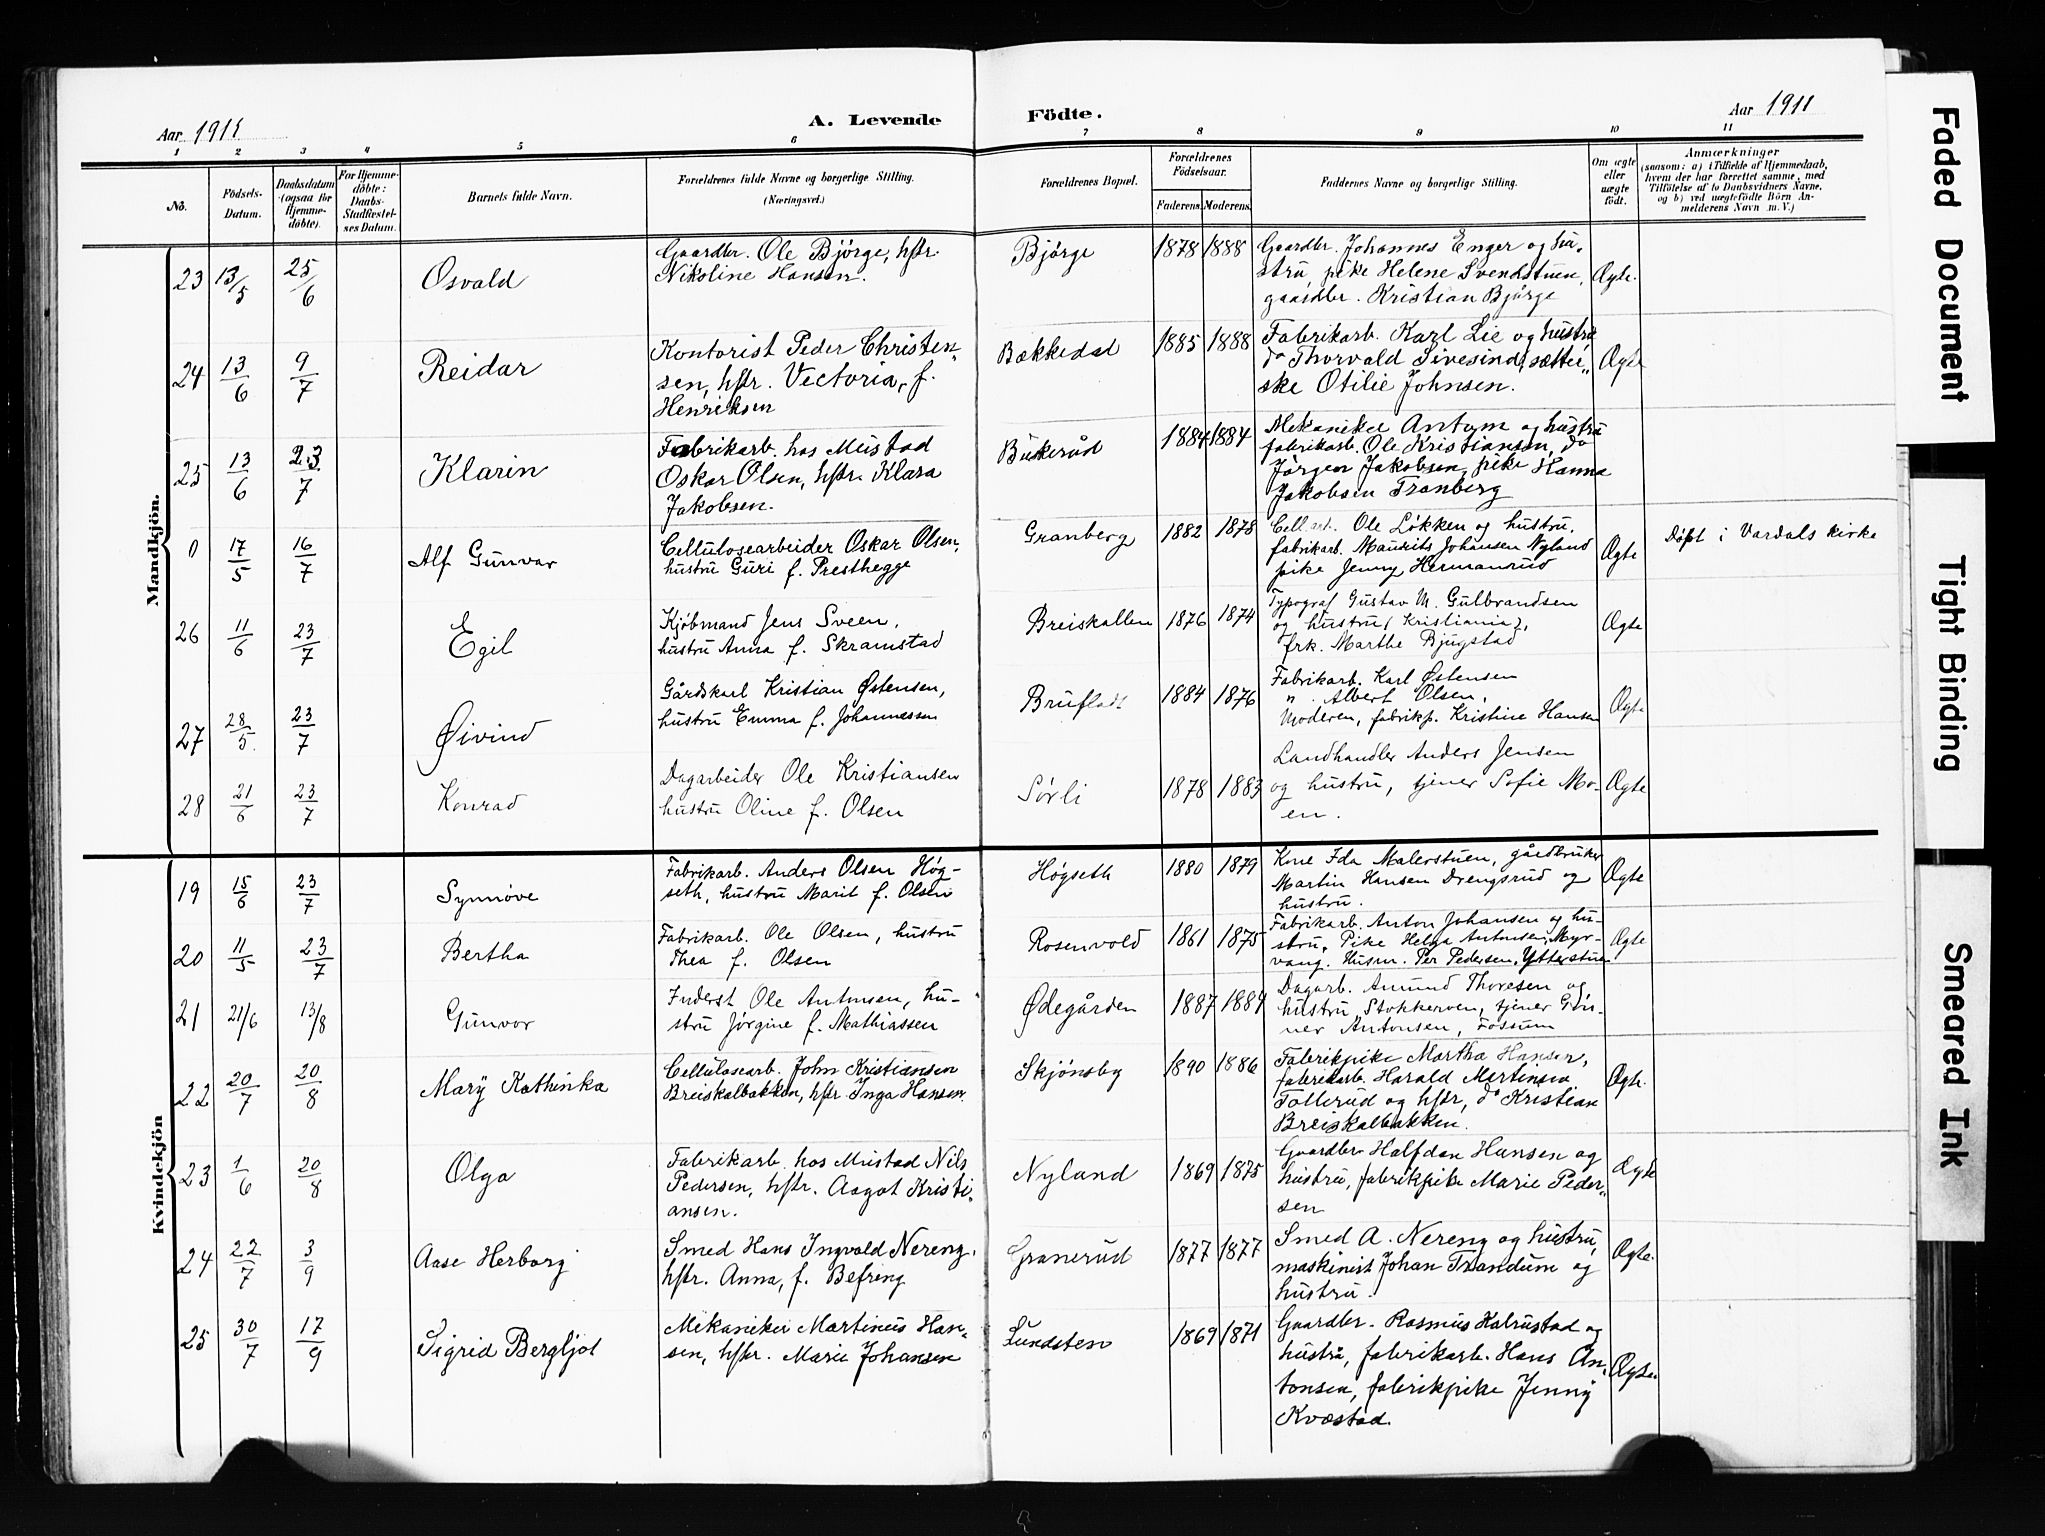 Aar 1911
A. Levende
Födte.
Aar 1911
1 2 3 4 5 6 7 8 9 10 11
No.
Födsels-
Datum.
Daabsdatum
(ogsaa for
Hjemme-
döbte).
For Hjemme-
döbte:
Daabs-
Stadfæstel-
ses Datum.
Barnets fulde Navn.
Forældrenes fulde Navne og borgerlige Stilling.
(Næringsvei.)
Forældrenes Bopæl.
Forældrenes
Födselsaar.
Faderens. Moderens.
Faddernes Navne og borgerlige Stilling.
Om ægte
eller
uægte
födt.
Anmærkninger
(saasom: a) i Tilfælde af Hjemmedaab,
hvem der har forrettet samme, med
Tilföielse af to Daabsvidners Navne,
og b) ved uægtefödte Börn An-
melderens Navn m. V.)
Mandkjön.
23 13/5 25/6 Osvald
Gaardbr. Ole Bjørge, hstr.
Nikoline Hansen.
Bjørge 1878 1888
Gaardbr. Johannes Enger og hu-
stru, pike Helene Svendstuen,
gaardbr. Kristian Bjørge
Ægte.
24 13/6 9/7 Reidar
Kontorist Peder Christen-
sen, hstr. Vectoria, f.
Henriksen
Bækkedal 1885 1888
Fabrikarb. Karl Lie og hustru
do Thorvald Sivesind, sætter-
ske Otilie Johnsen.
Ægte
25 13/6 23/7 Klarin
Fabrikarb. hos Mustad
Oskar Olsen, hstr. Klara
Jakobsen.
Buskerud 1884 1884
Mekaniker Antom og hustru
fabrikarb. Ole Kristiansen, do
Jørgen Jakobsen, pike Hanna
Jakobsen Tranberg
0 17/5 16/7 Alf Gunvar
Cellulosearbeider Oskar Olsen,
hustru Guri f. Presthegge
Granberg 1882 1878
Cell.arb. Ole Løkken og hustru.
fabrikarb. Maurits Johansen Nyland
pike Jenny Hermanrud
Ægte
Døpt i Vardals kirke
26 11/6 23/7 Egil
Kjøbmand Jens Sveen,
hustru Anna f. Skramstad
Breiskallen 1876 1874
Typograf Gustav M. Gulbrandsen
og hustru (Kristiania),
frk. Marthe Bjugstad
Ægte
27 28/5. 23/7 Øivind
Gårdskarl Kristian Østensen,
hustru Emma f. Johannessen
Brufladt 1884 1876
Fabrikarb. Karl Østensen
" Albert Olsen,
Moderen, fabrikp. Kristine Hansen
Ægte
28 21/6 23/7 Konrad
Dagarbeider Ole Kristiansen
hustru Oline f. Olsen
Sørli 1878 1883
Landhandler Anders Jensen
og hustru, tjener Sofie Mo-
en.
Ægte
Kvindekjön
19 15/6 23/7 Synnøve
Fabrikarb. Anders Olsen Høg-
seth, hustru Marit f. Olsen
Høgseth 1880 1879
Kone Ida Malerstuen, gårdbruker
Martin Hansen Drengsrud og
hustru.
Ægte
20 11/5 23/7 Bertha
Fabrikarb. Ole Olsen, hustru
Thea f. Olsen
Rosenvold 1861 1875
Fabrikarb. Anton Johansen og hu-
stru. Pike Helga Antonsen, Myr-
vang. Husm. Per Pedersen, Ytterstuen
Ægte
21 21/6 13/8 Gunvor
Inderst Ole Antonsen, hu-
stru Jørgine f. Mathiassen
Ødegården 1887 1884
Dagarb. Amund Thoresen og
hustru, Stokkerven, tjener Gün-
ner Antonsen, Fossum
22 20/7 20/8 Mary Kathinka
Cellulosearb. John Kristiansen
Breiskalbakken, hstr. Inga Hansen.
Skjønsby 1890 1886
Fabrikpike Martha Hansen,
fabrikarb. Harald Martinsen
Tollerud og hstr, do Kristian
Breiskalbakken.
Ægte.
23 1/6 20/8 Olga
Fabrikarb. hos Mustad Nils
Pedersen, hstr. Aagot Kristi-
ansen.
Nyland 1869 1875
Gaardbr. Halfdan Hansen og
hustru, fabrikpike Marie Peder-
sen
Ægte
24 22/7 3/9 Aase Herborg
Smed Hans Ingvald Nereng,
hstr. Anna, f. Befring
Granerud 1877 1877
Smed A. Nereng og hustru,
maskinist Johan Trandum og
hustru.
Ægte.
25 30/7 17/9 Sigrid Bergljot
Mekaniker Martinus Han-
sen, hstr. Marie Johansen
Lundsten 1869 1871
Gaardbr. Rasmus Kalrustad og
hustru, fabrikarb. Hans An-
tonsen, fabrikpike Jenny
Kvæstad.
Ægte.
Faded Document
Tight Binding
Smeared Ink